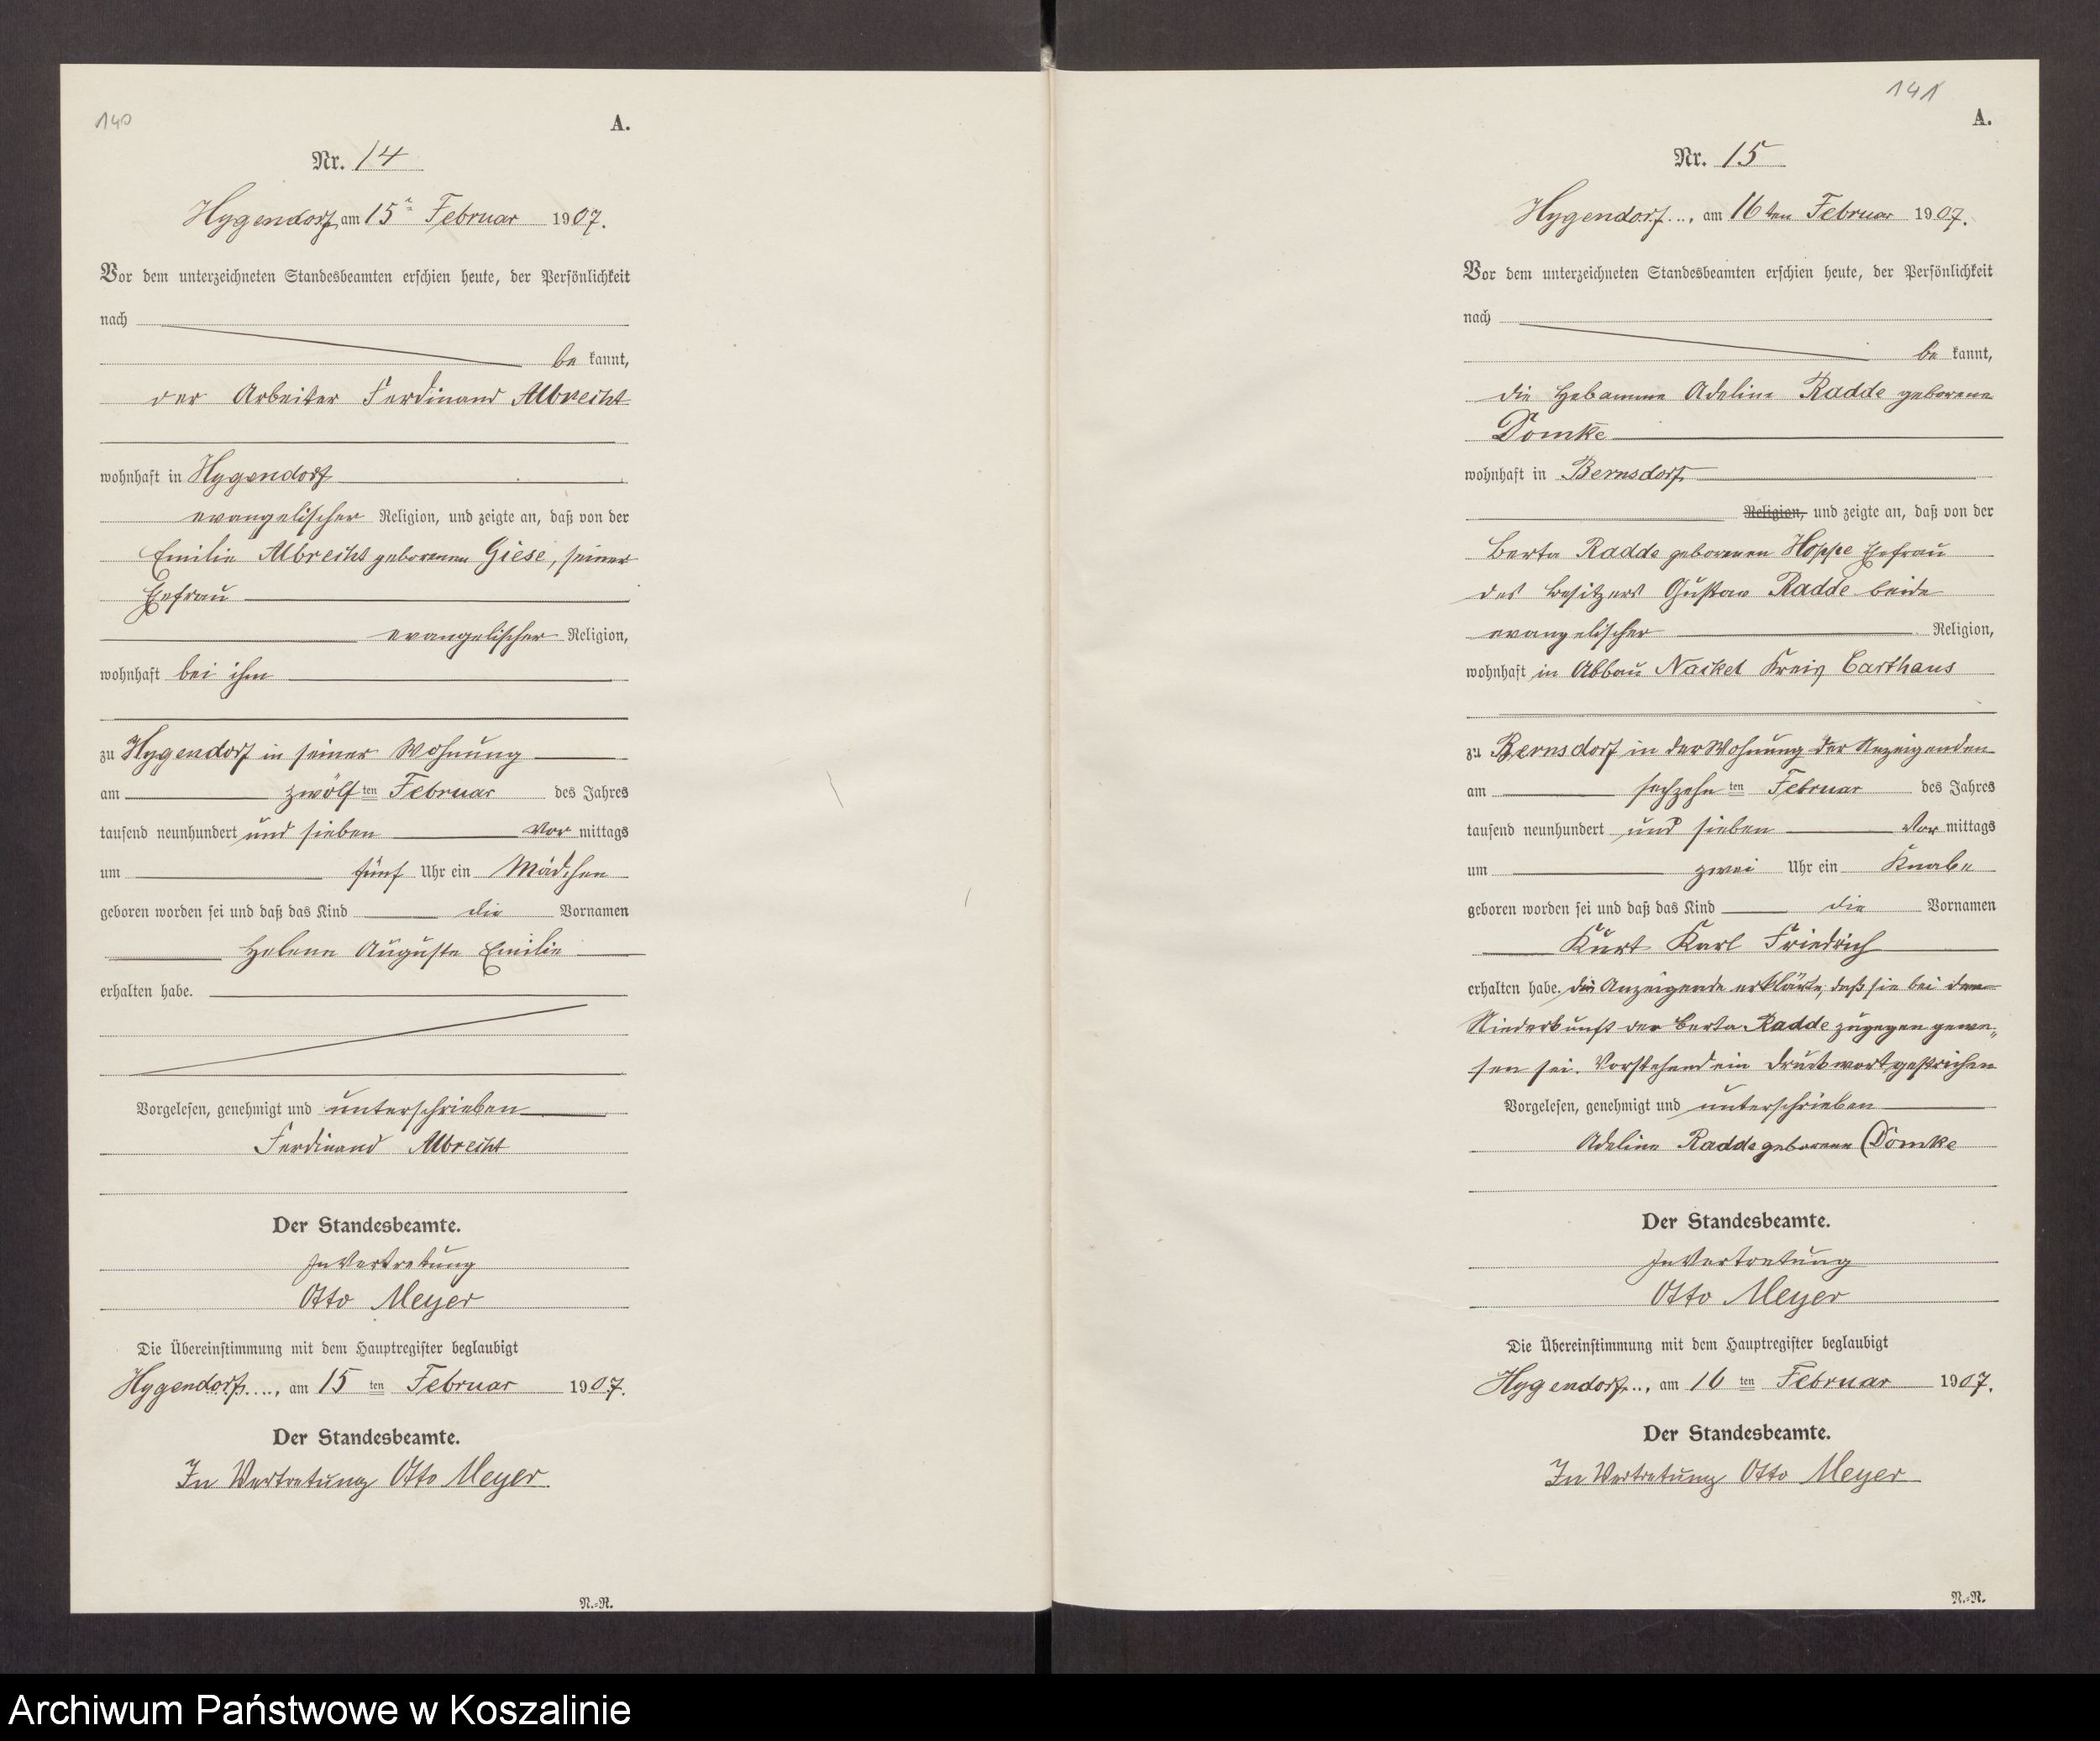 140
A.
Nr. 14
Hygendorf am 15ten Februar 1907.
Vor dem unterzeichneten Standesbeamten erschien heute, der Persönlichkeit
nach
be kannt,
der Arbeiter Ferdinand Albrecht
wohnhaft in Hygendorf
evangelischer Religion, und zeigte an, daß von der
Emilie Albrecht geborenen Giese, seiner
Ehefrau
evangelischer Religion,
wohnhaft bei ihm
zu Hygendorf in seiner Wohnung
am zwölf ten Februar des Jahres
tausend neunhundert und sieben Vor mittags
um fünf Uhr ein Mädchen
geboren worden sei und daß das Kind die Vornamen
Helene Auguste Emilie
erhalten habe.
Vorgelesen, genehmigt und unterschrieben
Ferdinand Albrecht
Der Standesbeamte.
In Vertretung
Otto Meyer
Die Übereinstimmung mit dem Hauptregister beglaubigt
Hygendorf...., am 15 ten Februar 1907.
Der Standesbeamte.
In Vertretung Otto Meyer
N.=R.
141
A.
Nr. 15
Hygendorf..., am 16ten Februar 1907.
Vor dem unterzeichneten Standesbeamten erschien heute, der Persönlichkeit
nach
be kannt,
die Hebamme Adeline Radde geborene
Domke
wohnhaft in Bernsdorf
Religion, und zeigte an, daß von der
Berta Radde geborenen Hoppe Ehefrau
des Besitzers Gustav Radde beide
evangelischer Religion,
wohnhaft in Abbau Nackel Kreis Carthaus
zu Bernsdorf in der Wohnung der Anzeigenden
am sechzehn ten Februar des Jahres
tausend neunhundert und sieben Vor mittags
um zwei Uhr ein Knabe
geboren worden sei und daß das Kind die Vornamen
Kurt Karl Friedrich
erhalten habe. Die Anzeigende erklärte, daß sie bei der
Niederkunft der Berta Radde zugegen gewe=
sen sei. Vorstehend ein Druckwort gestrichen
Vorgelesen, genehmigt und unterschrieben
Adeline Radde geborene Domke
Der Standesbeamte.
In Vertretung
Otto Meyer
Die Übereinstimmung mit dem Hauptregister beglaubigt
Hygendorf..., am 16 ten Februar 1907.
Der Standesbeamte.
In Vertretung Otto Meyer
N.=R.
Archiwum Państwowe w Koszalinie